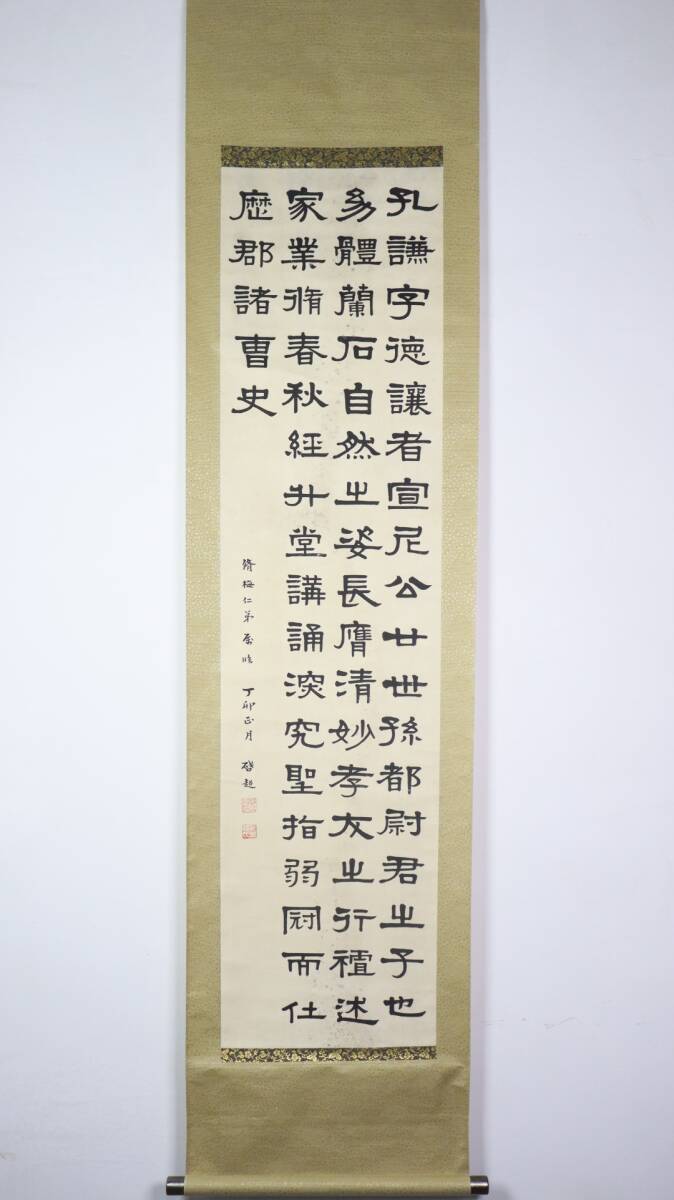 孔謙字德讓者宣尼公廿世孫都尉君之子也
㓜體蘭石自然之姿長膺清妙孝友之行禮述
家業脩春秋經升堂講誦深究聖指弱冠而仕
歷郡諸曹史
梅仁弟屬臨 丁卯正月 啓超